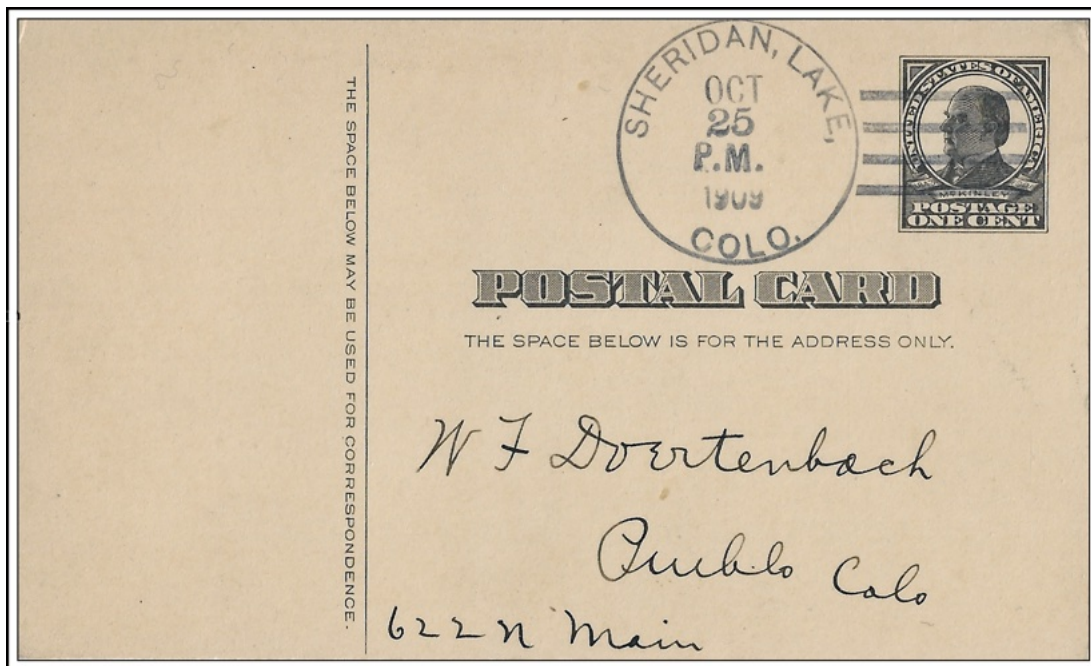 THE SPACE BELOW MAY BE USED FOR CORRESPONDENCE.
SHERIDAN, LAKE,
OCT
25
P.M.
1909
COLO.
UNITED STATES OF AMERICA
McKINLEY
POSTAGE
ONE CENT
POSTAL CARD
THE SPACE BELOW IS FOR THE ADDRESS ONLY.
W F Doertenbach
Pueblo Colo
622 N Main